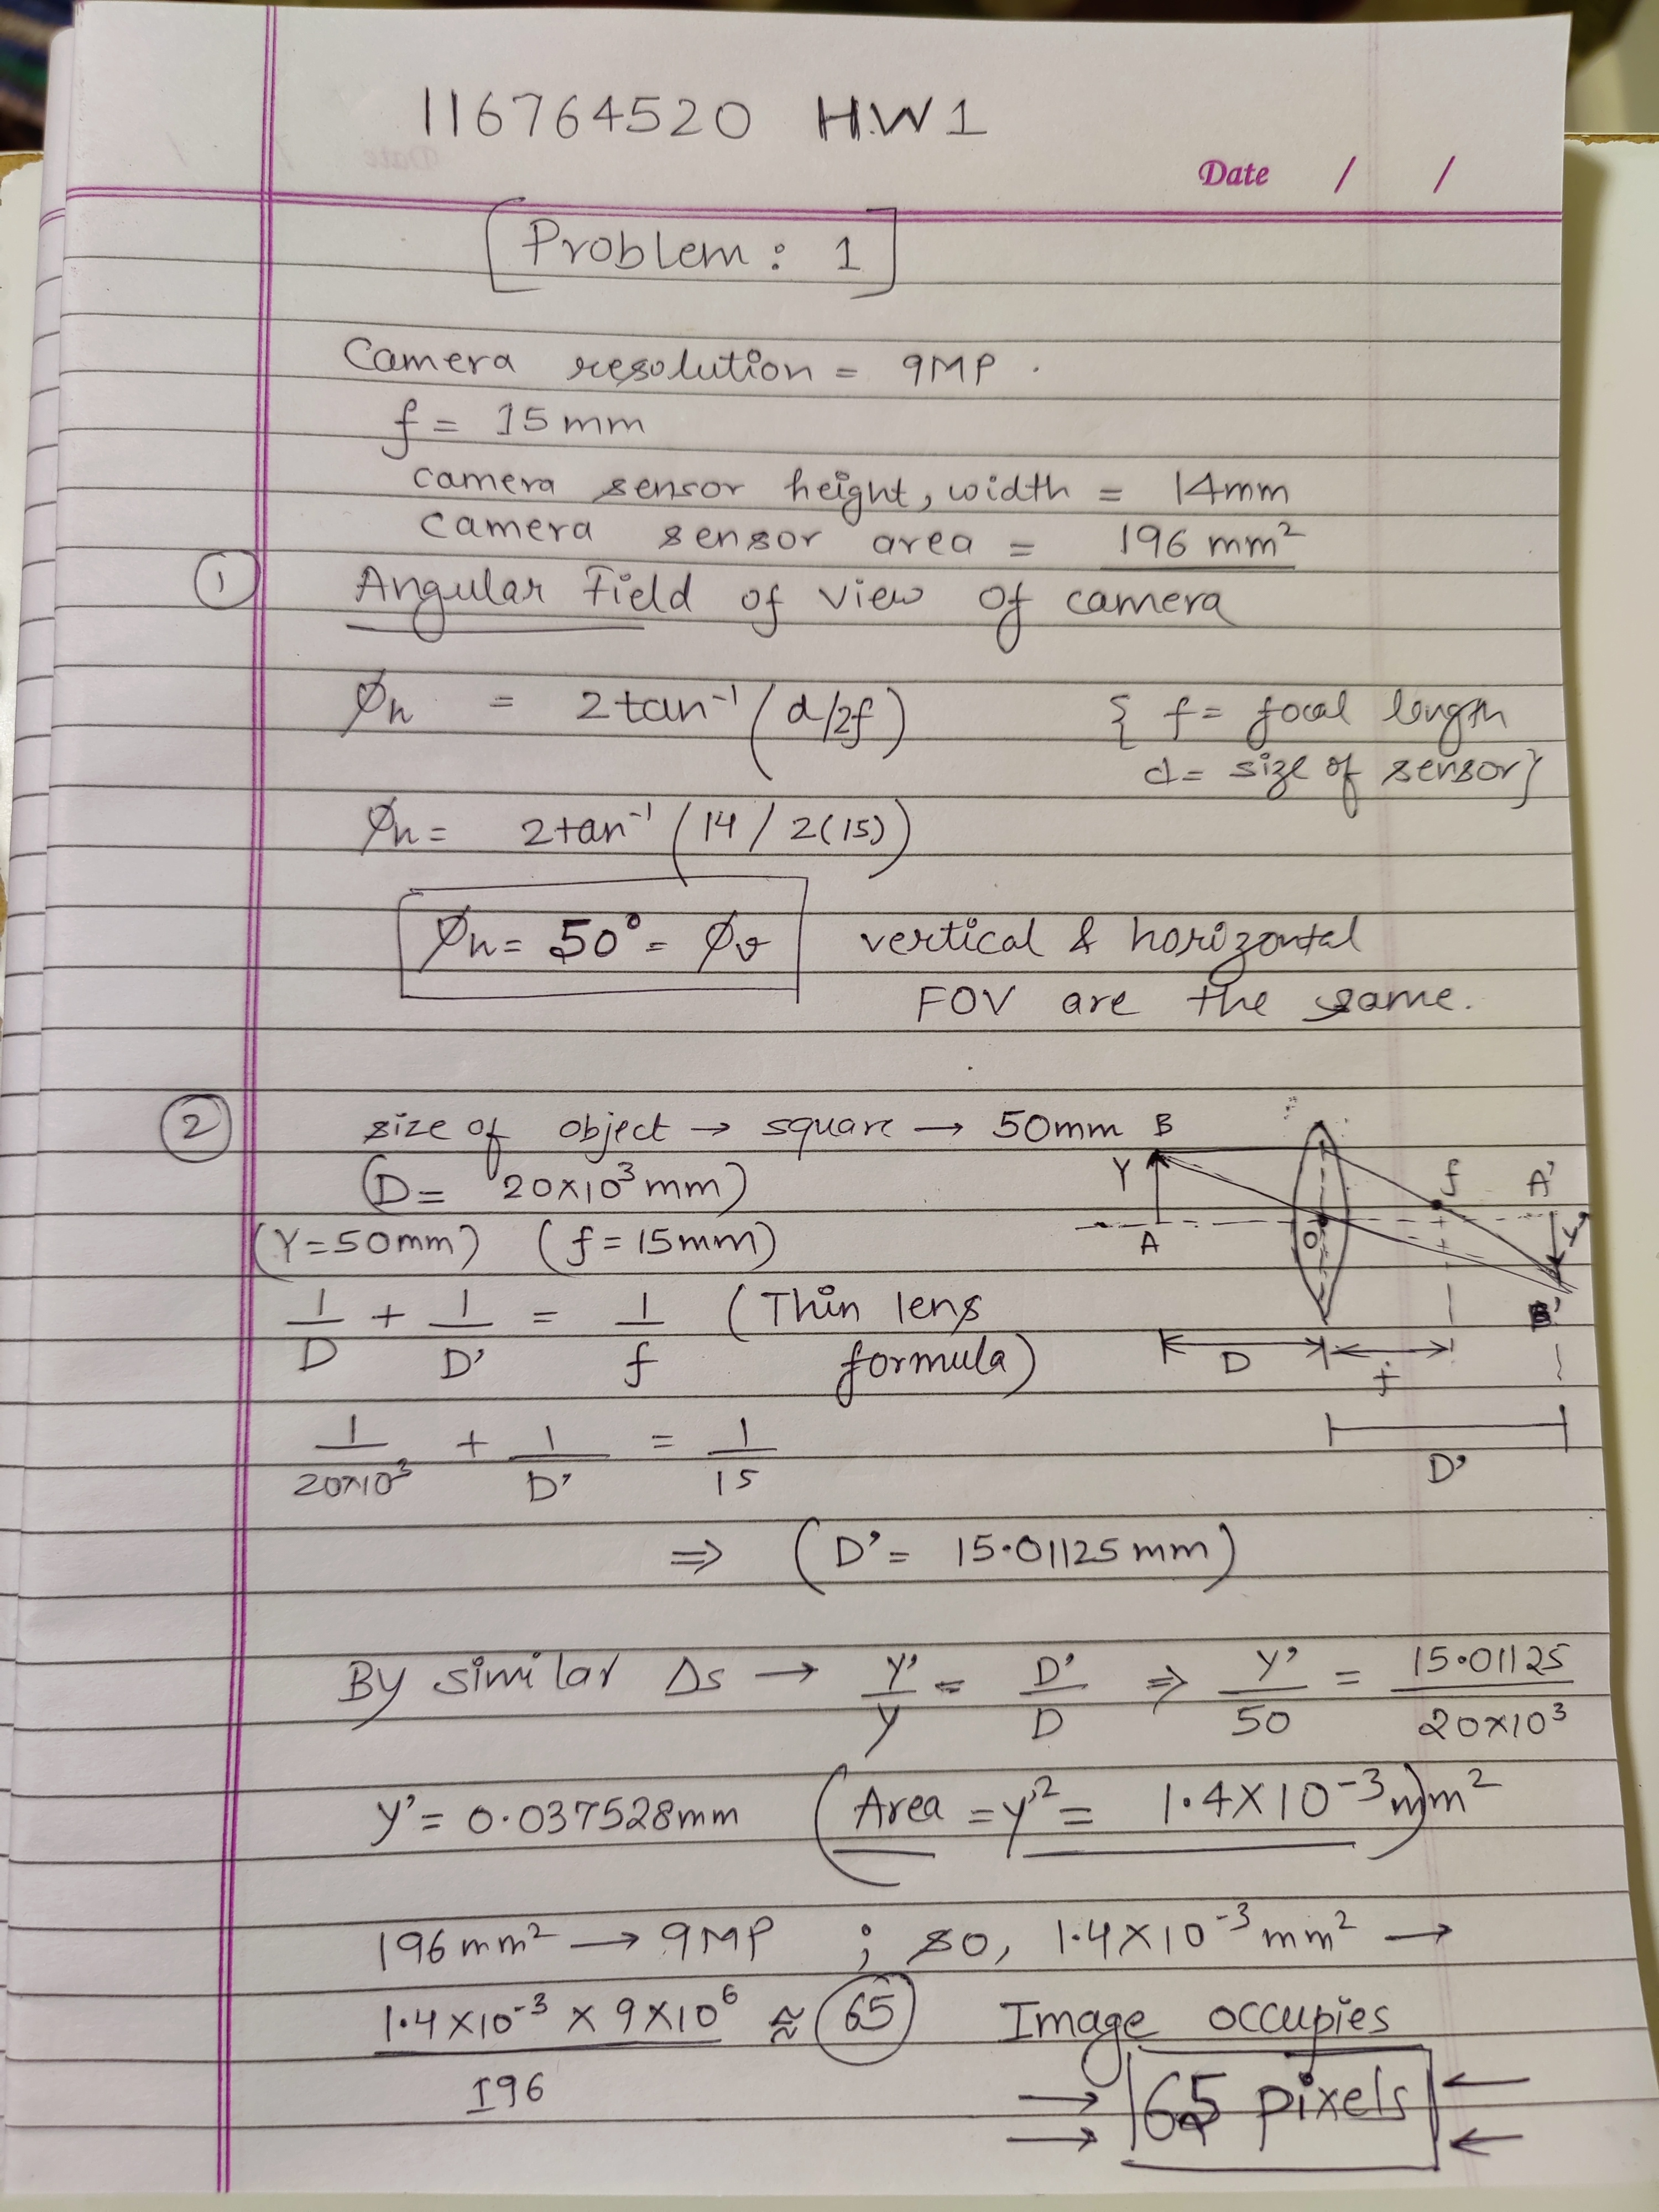 116764520 HW1
Date / /
Problem : 1
Camera resolution = 9MP.
f = 15 mm
camera sensor height, width = 14mm
camera sensor area = 196 mm²
① Angular Field of view of camera
Øh = 2tan⁻¹ (d/2f) { f = focal length
d = size of sensor}
Øh = 2tan⁻¹ (14 / 2(15))
Øh = 50° = Øv vertical & horizontal
FOV are the same.
② size of object → square → 50mm
(D = 20×10³ mm)
(Y = 50mm) (f = 15mm)
1/D + 1/D' = 1/f (Thin lens
formula)
1/20×10³ + 1/D' = 1/15
B
Y
f
A'
A
O
Y'
B'
D
f
D'
⇒ (D' = 15.01125 mm)
By similar Δs → Y'/Y = D'/D ⇒ Y'/50 = 15.01125/20×10³
Y' = 0.037528mm (Area = y'² = 1.4×10⁻³ mm²)
196 mm² → 9MP ; so, 1.4×10⁻³ mm² →
1.4×10⁻³ × 9×10⁶ / 196 ≈ 65 Image occupies
65 pixels